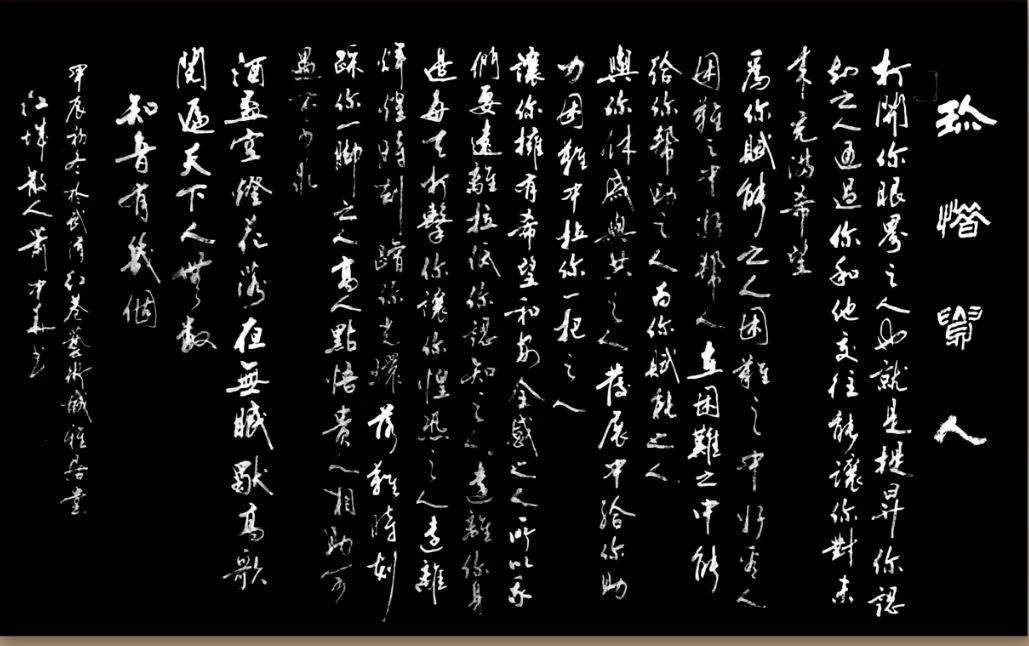 珍惜貴人
打開你眼界之人也就是提昇你認
知之人通過你和他交往能讓你對未
來充滿希望
為你賦能之人困難之中好貴人
困難之中能幫人在困難之中能
給你幫助之人為你賦能之人
與你休戚與共之人發展中給你助
力困難中拉你一把之人
讓你擁有希望和安全感之人所以我
們要遠離拉低你認知之人遠離你身
邊每天打擊你讓你惶恐之人遠離
輝煌時刻蹭你光環落難時刻
踩你一腳之人高人點悟貴人相助
酒盡壺燈花落夜無眠獸高歌
閱遍天下人無數
知音有幾個
甲辰初冬於武漢紅巷藝術城雅居堂
江城散人蕭中華書